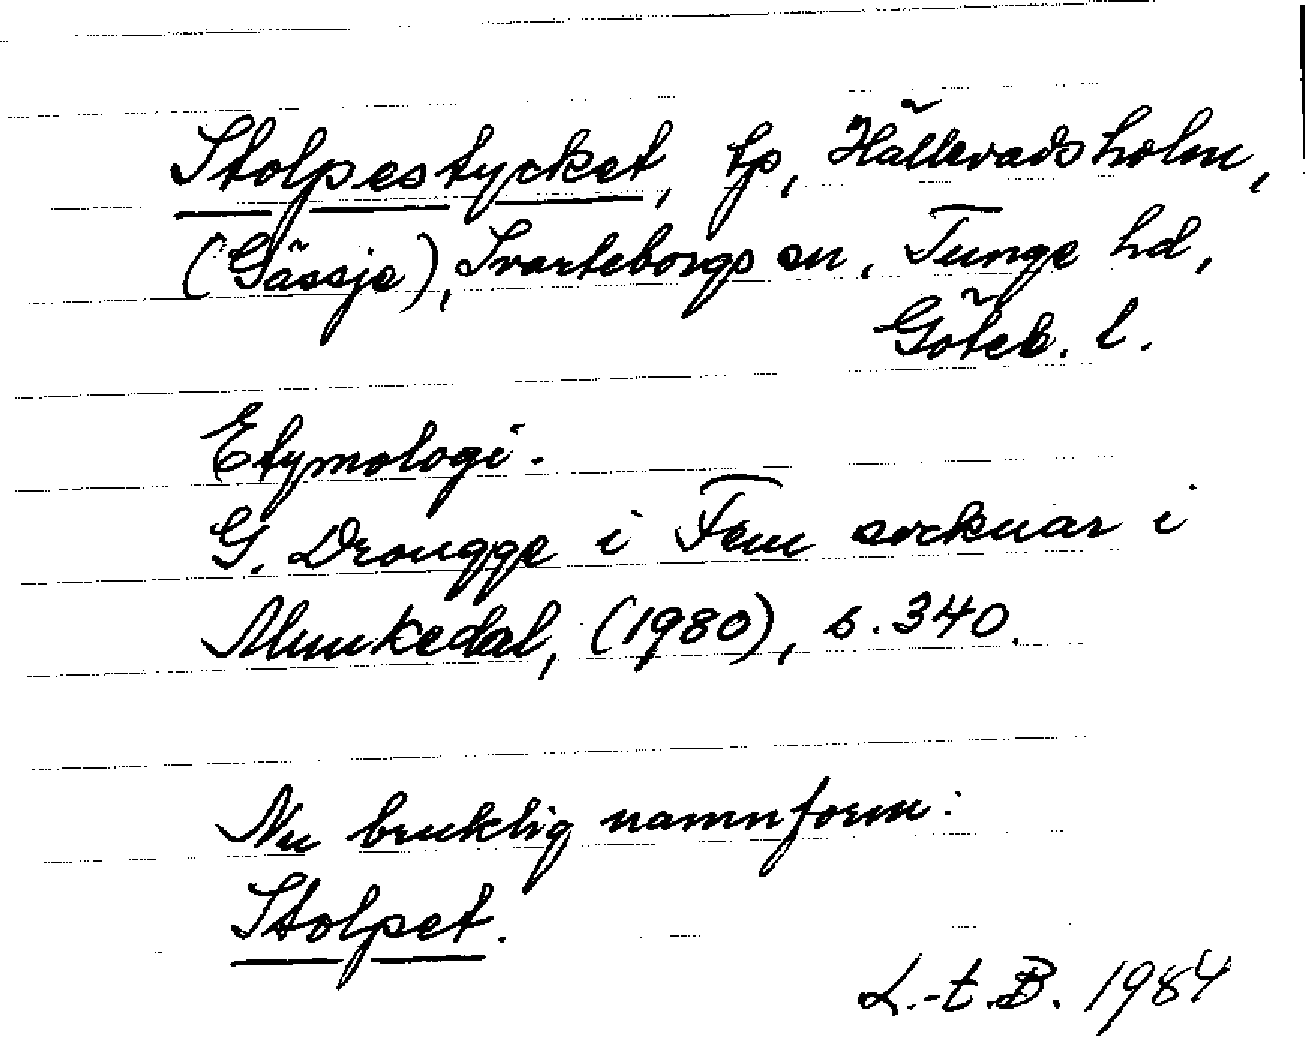 Stolpestycket, tp, Hällevadsholm,
(Gässje), Svarteborgs sn, Tunge hd,
Göteb. l.
Etymologi.
G. Drougge i Fem socknar i
Munkedal, (1980), s. 340.
Nu bruklig namnform:
Stolpet.
L.-t. B. 1984